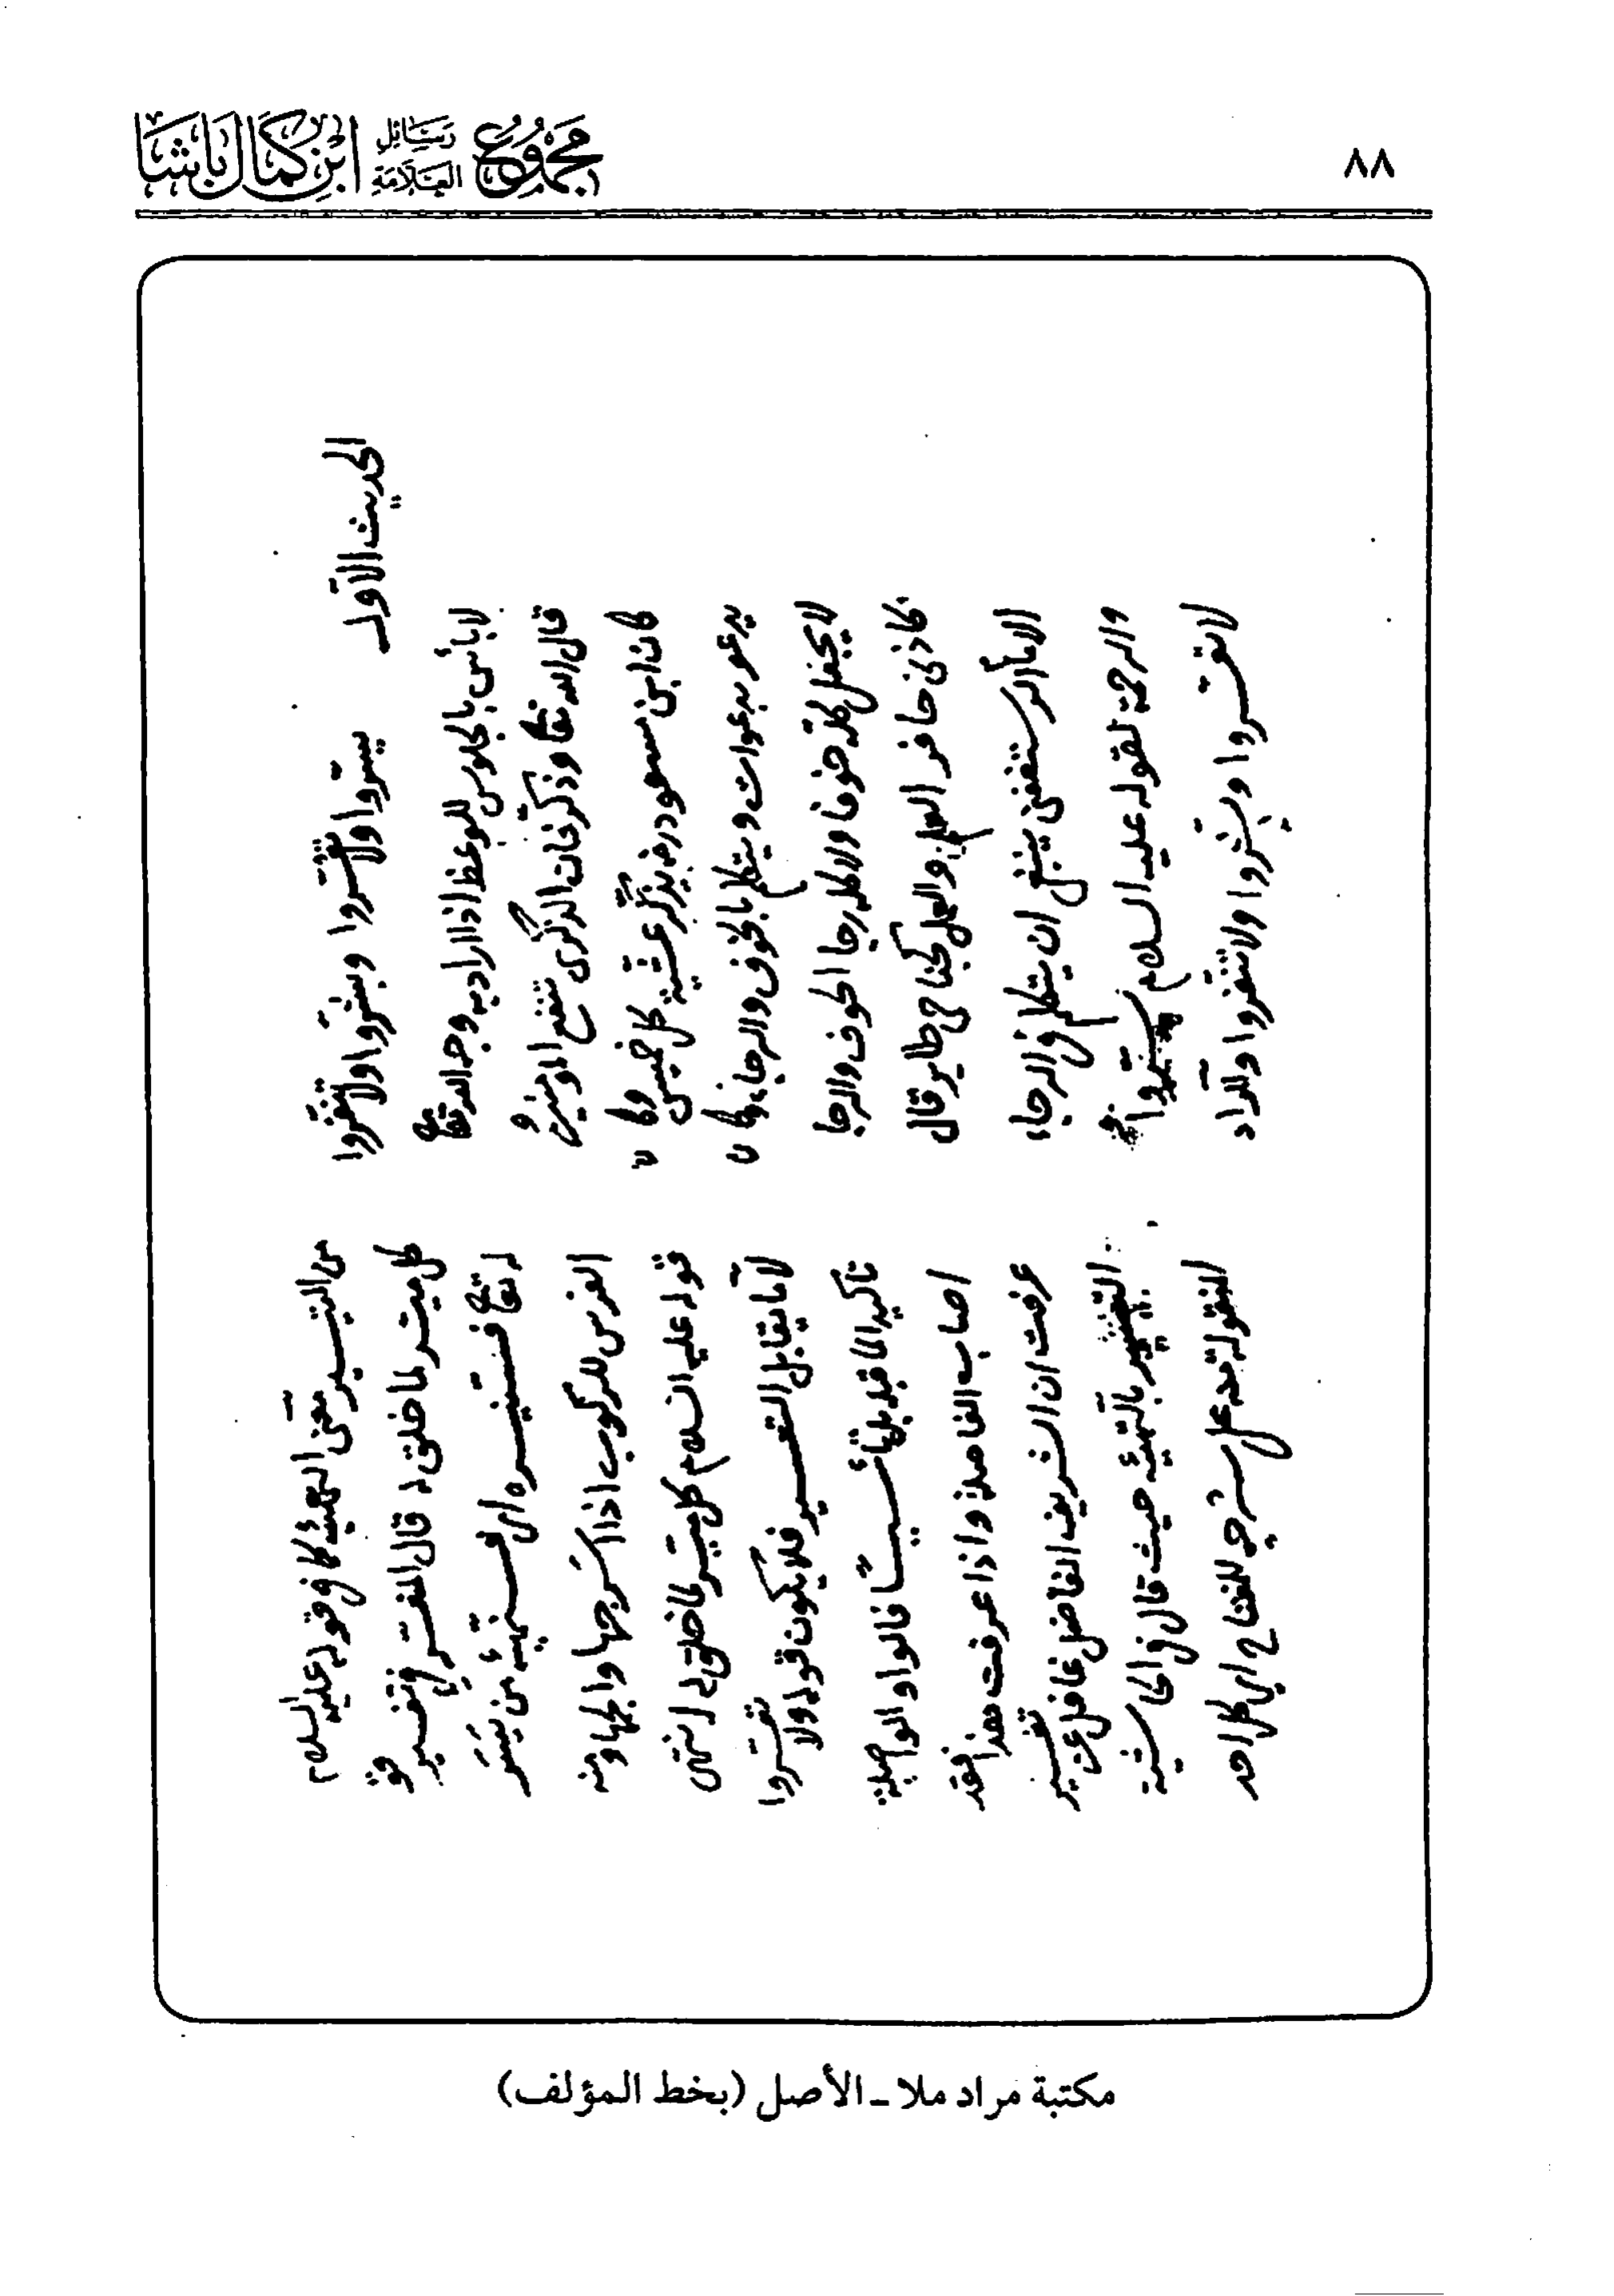 ٨٨
مجموع رسائل العلامة ابن كمال باشا
الحديث الاول يسروا ولا تعسروا وبشروا ولا تنفروا
لا باس بالجلوس للوعظ اذا اراد به وجه الله تعالى
قال الله تعالى وذكر فان الذكرى تنفع المؤمنين و
كان ابن مسعود رضه يذكر عشية كل خميس وكان
يدعو بدعوات ويتكلم بالخوف والرجاء وكان
لا يجعل كله خوفا ولا كله رجا الخوف والرجا
كاذني حافر العلم والعمل كجناحي طاير قال
الامام ينبغي ان يتكلم في الرجاء
والرحمة لقوله عليه السلام يسروا
لا تعسروا وبشروا ولا تنفروا والمراد
من التيسير معنى التهيئة كما في قوله عليه السلام
كل ميسر لما خلق له قال المفسر في تفسير قو
له تعالى فسنيسره اي فسنهيئه من يسر
الفرس للركوب اذا اسرجها والجمها ومنه
قوله عليه السلام كل ميسر لما خلق له انتهى
لا ما يقابل التعسير فلا يكون قوله ولا تعسروا
تاكيدا لما قبله بل تأسيسا فالواو الواصلة
اصاب الفاصلة واذا عرفت هذا فقد
عرفت ان الشريف الفاضل غافل عن تفسير
التيسير بالتهيئة حيث قال في الحاشية
المنقولة عنه على شرحه للمفتاح اي كل احد
مكتبة مراد ملا - الأصل (بخط المؤلف)